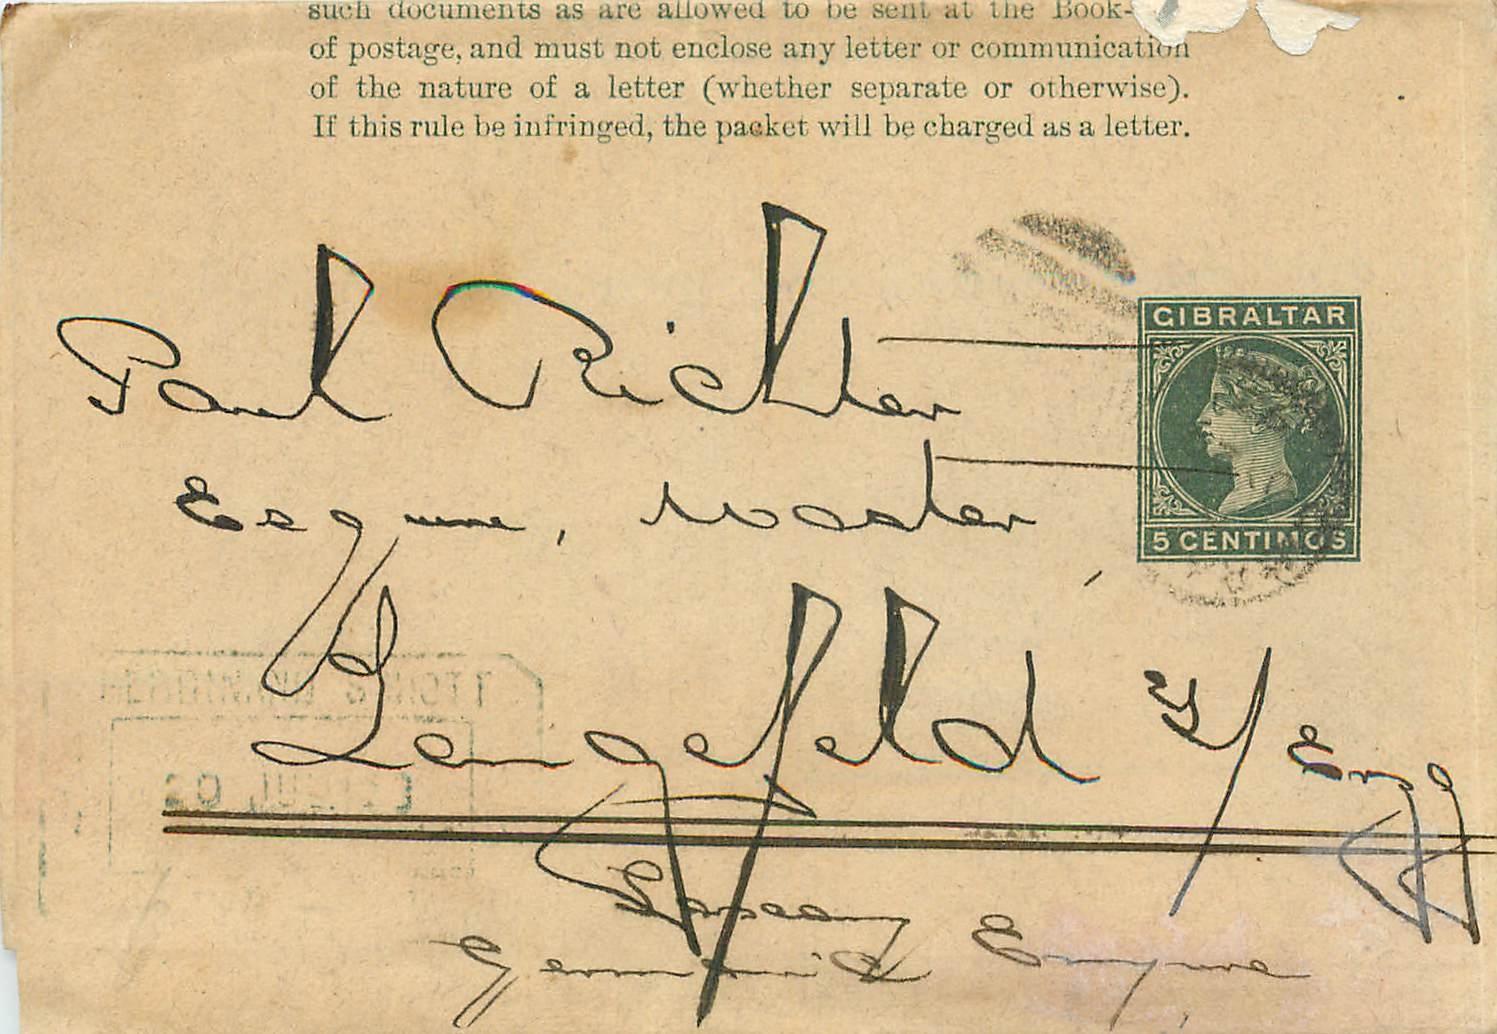 such documents as are allowed to be sent at the Book-
of postage, and must not enclose any letter or communication
of the nature of a letter (whether separate or otherwise).
If this rule be infringed, the packet will be charged as a letter.
GIBRALTAR
5 CENTIMOS
Paul Richter
Esquire, Master
Lengefeld i/ Erzg
Saxony
Germanic Empire